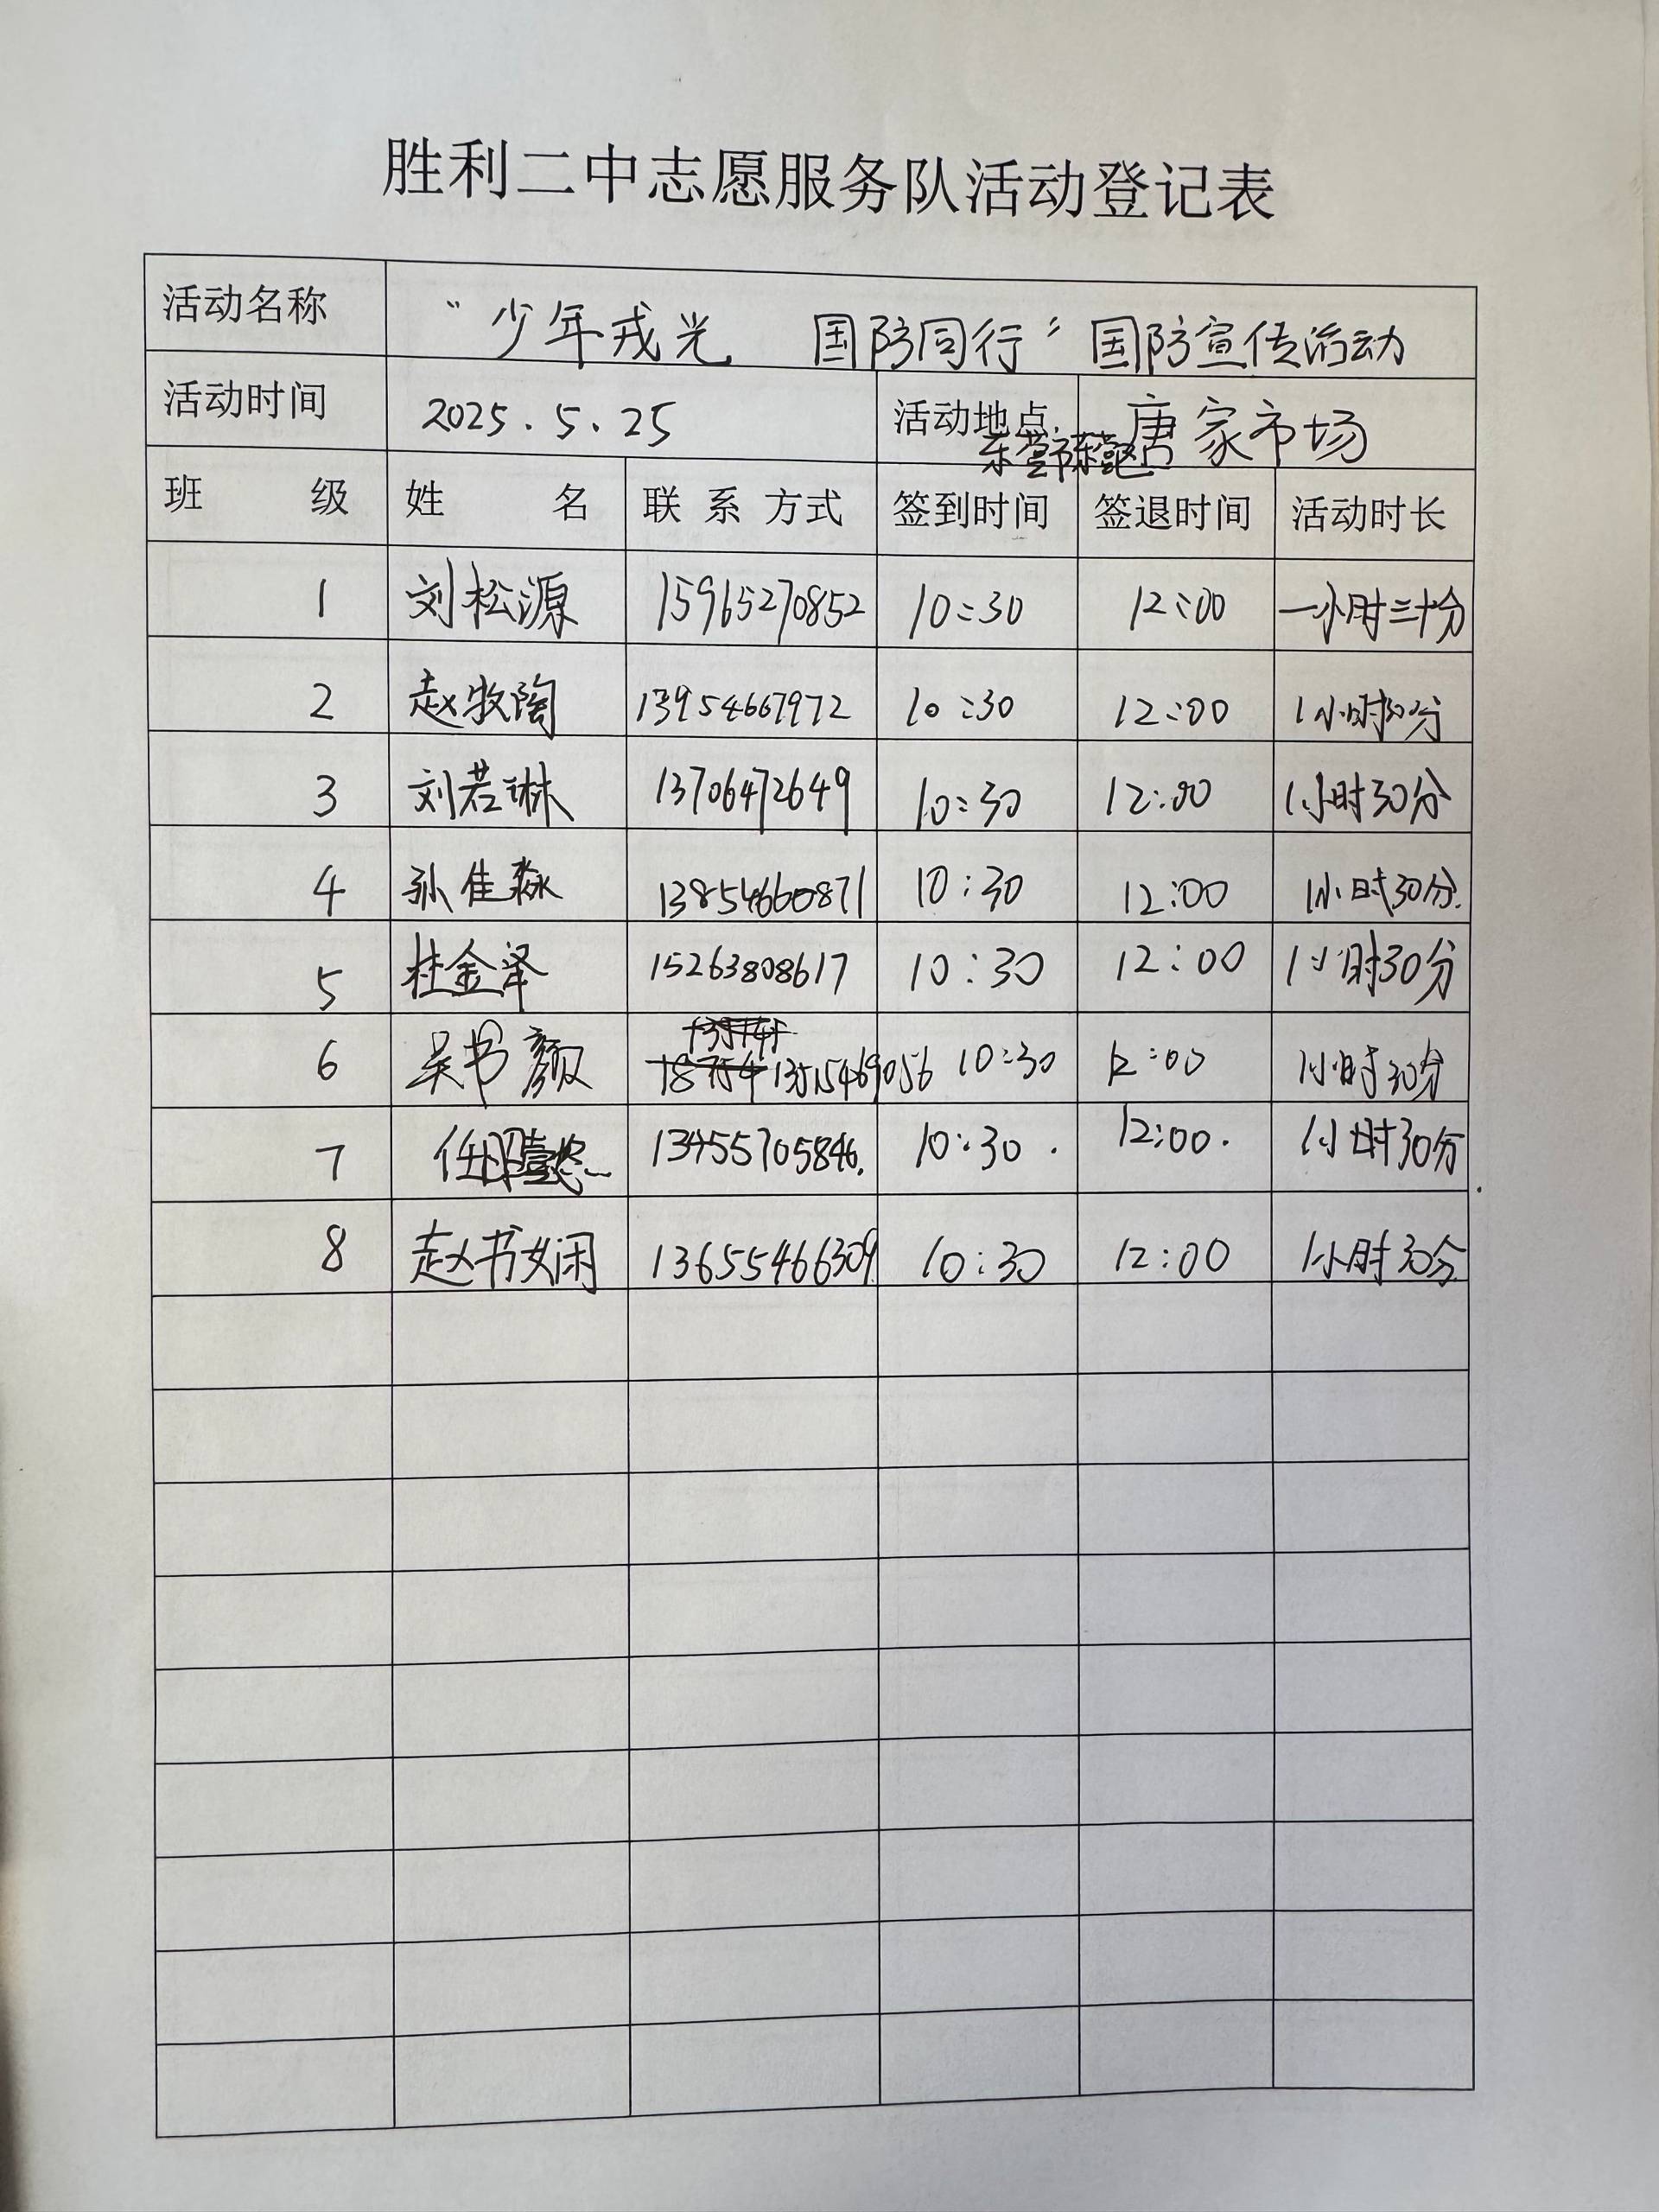 胜利二中志愿服务队活动登记表
活动名称 “少年戎光 国防同行”国防宣传活动
活动时间 2025.5.25 活动地点 东营市东营区唐家市场
班 级 姓 名 联 系 方式 签到时间 签退时间 活动时长
1 刘松源 15965270852 10:30 12:00 一小时三十分
2 赵牧陶 13954667972 10:30 12:00 1小时30分
3 刘若琳 13706472649 10:30 12:00 1小时30分
4 孙佳淼 13854660871 10:30 12:00 1小时30分.
5 杜金泽 15263808617 10:30 12:00 1小时30分
6 吴书颜 13515469056 10:30 12:00 1小时30分
7 任 13455705846. 10:30. 12:00. 1小时30分
8 赵书娴 13655466309 10:30 12:00 1小时30分